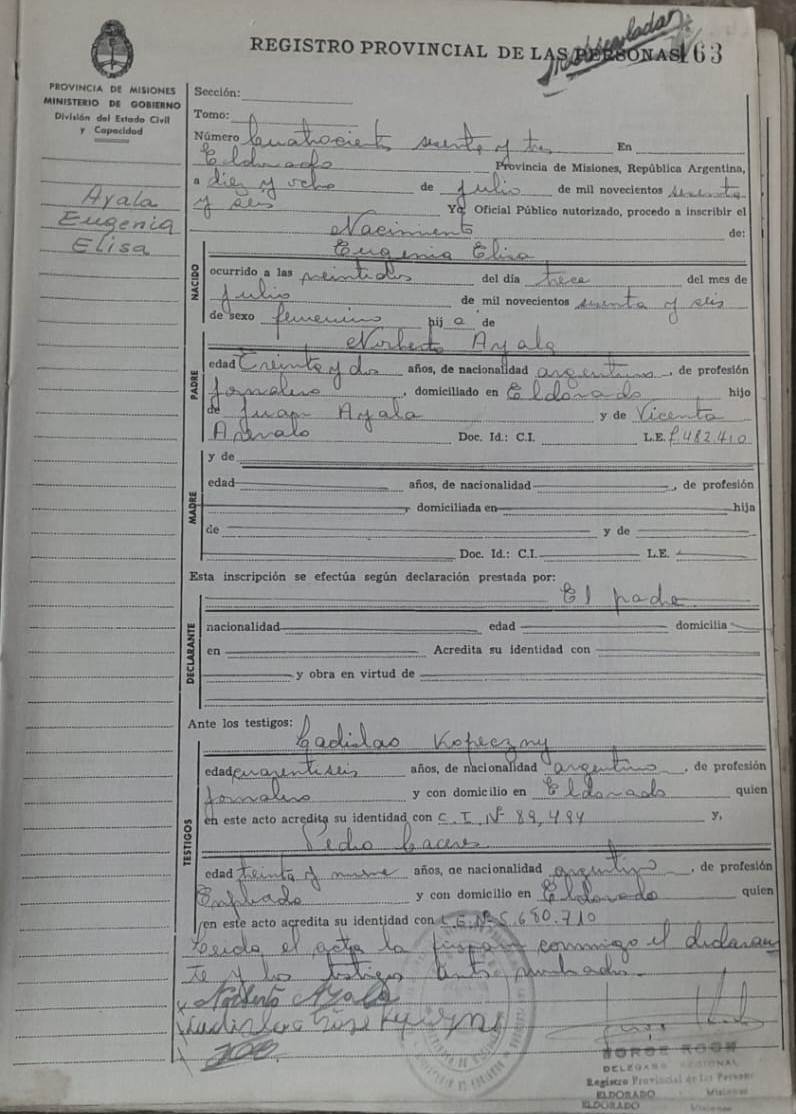 REGISTRO PROVINCIAL DE LAS PERSONAS 463
PROVINCIA DE MISIONES
MINISTERIO DE GOBIERNO
División del Estado Civil
y Capacidad
Ayala
Eugenia
Elisa
Sección:
Tomo:
Número Cuatrociento sesenta y tres En
Eldorado Provincia de Misiones, República Argentina,
a diez y ocho de Julio de mil novecientos sesenta
y seis Yo, Oficial Público autorizado, procedo a inscribir el
Nacimiento de:
NACIDO
Eugenia Elisa
ocurrido a las veintidos del día trece del mes de
Julio de mil novecientos sesenta y seis
de sexo femenino hija de
PADRE
Norberto Ayala
edad Treinta y dos años, de nacionalidad argentino, de profesión
Jornalero, domiciliado en Eldorado hijo
de Juan Ayala y de Vicenta
Arevalo Doc. Id.: C.I. L.E. 7.482.410
MADRE
y de
edad años, de nacionalidad, de profesión
, domiciliada en hija
de y de
Doc. Id.: C.I. L.E.
Esta inscripción se efectúa según declaración prestada por:
El padre
DECLARANTE
nacionalidad edad domicilia
en Acredita su identidad con
y obra en virtud de
Ante los testigos:
TESTIGOS
Ladislao Kopeczny
edad cuarentiseis años, de nacionalidad argentino, de profesión
Jornalero y con domicilio en Eldorado quien
en este acto acredita su identidad con C.I. Nº 89,494 y,
Pedro Caceres
edad treinta y nueve años, de nacionalidad argentino, de profesión
Empleado y con domicilio en Eldorado quien
en este acto acredita su identidad con L.E. Nº 5.680.710
Leida el acta la firman conmigo el declaran
te y los testigos
Norberto Ayala
JORGE
DELEGADO REGIONAL
Registro Provincial de las Personas
ELDORADO Misiones
ELDORADO Misiones